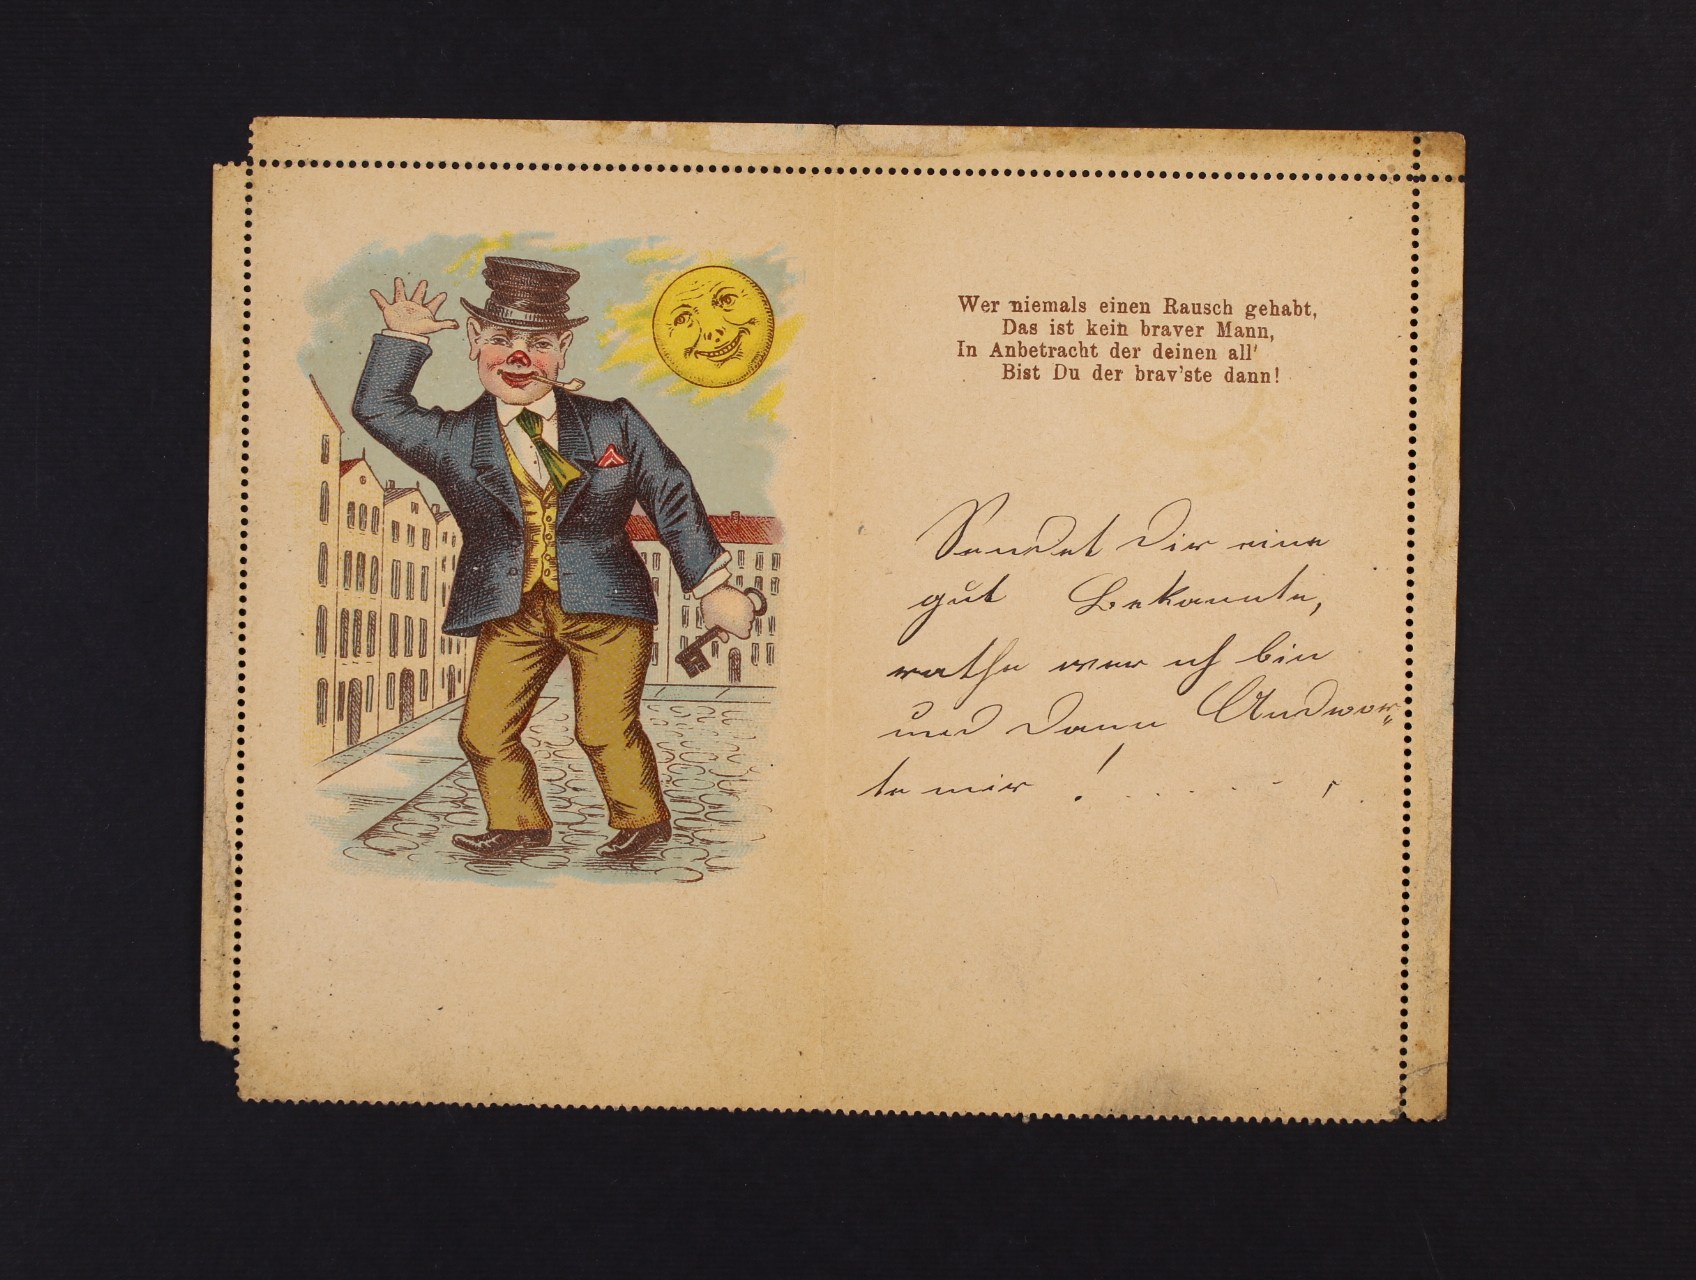 Wer niemals einen Rausch gehabt,
Das ist kein braver Mann,
In Anbetracht der deinen all'
Bist Du der brav'ste dann!
Sendet Dir eine
gut Bekannte,
rathe wer ich bin
und dann Andwor„
te mir ! . . . . . .